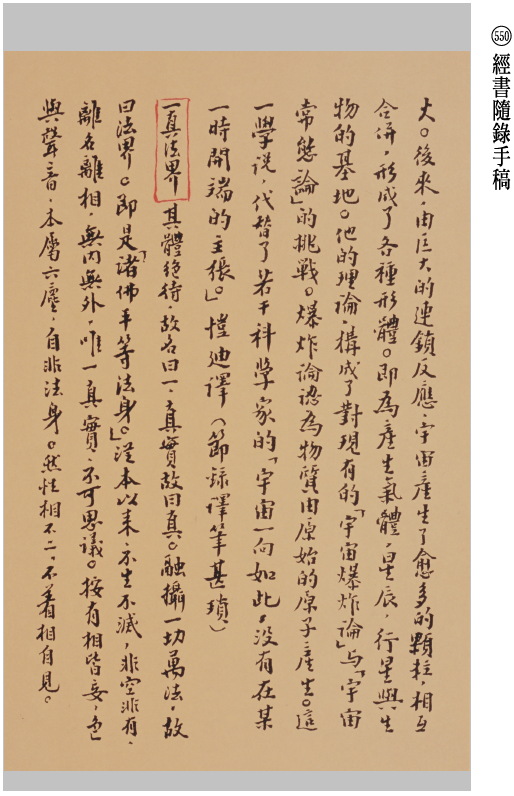 550 經書隨錄手稿
大。後來,由巨大的連鎖反應,宇宙產生了愈多的顆粒,相互
合併,形成了各種形體。即為產生氣體,星辰,行星與生
物的基地。他的理論,構成了對現有的「宇宙爆炸論」与「宇宙
常態論」的挑戰。爆炸論認為物質由原始的原子產生。這
一學說,代替了若干科學家的「宇宙一向如此,沒有在某
一時開端的主張。」愷迪譯(節錄譯筆甚瑣)
一真法界 其體絕待,故名曰一,真實故曰真。融攝一切萬法,故
曰法界。即是「諸佛平等法身。」從本以來,不生不滅,非空非有,
離名離相,無內無外,唯一真實,不可思議。按有相皆妄,色
與聲音,本屬六塵,自非法身。然性相不二,不着相自見。